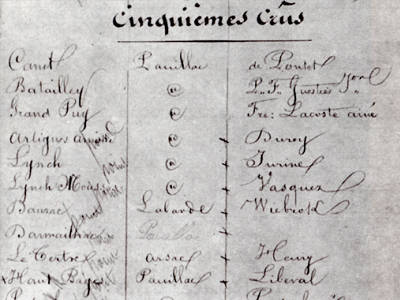 Cinquièmes Crûs
Canet Pauillac de Pontet
Batailley @ P.F. Guestier
Grand Puy @ Fre: Lacoste ainé
Artigues @ Duroy
Lynch @ Jurine
Lynch Mous: @ Vasquez
Bauzac Labarde Wiebrok
Darmailhac Pauillac
Le Tertre arsac Henry
Haut Bages Pauillac Liberal